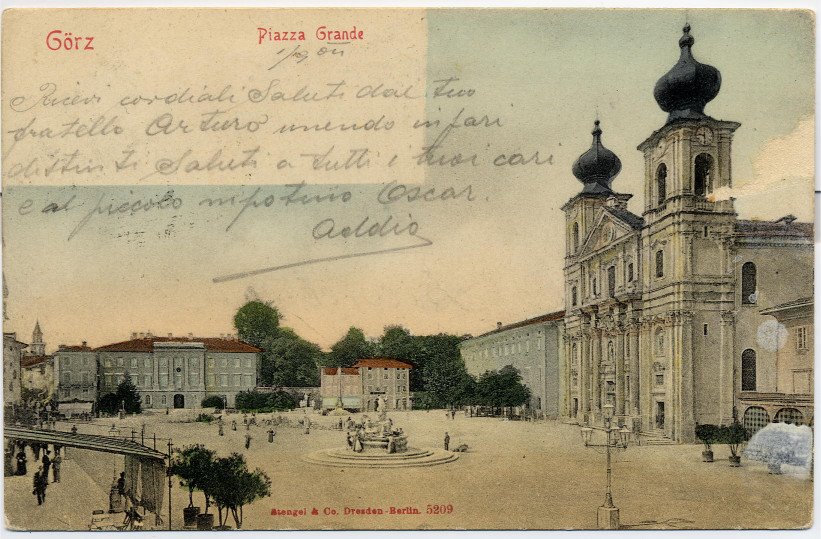 Görz
Piazza Grande
Ricevi cordiali Saluti dal tuo
fratello Arturo unendo in pari
distinti Saluti a tutti i tuoi cari
e al piccolo nipotino Oscar.
Addio
Stengel & Co. Dresden-Berlin. 5209